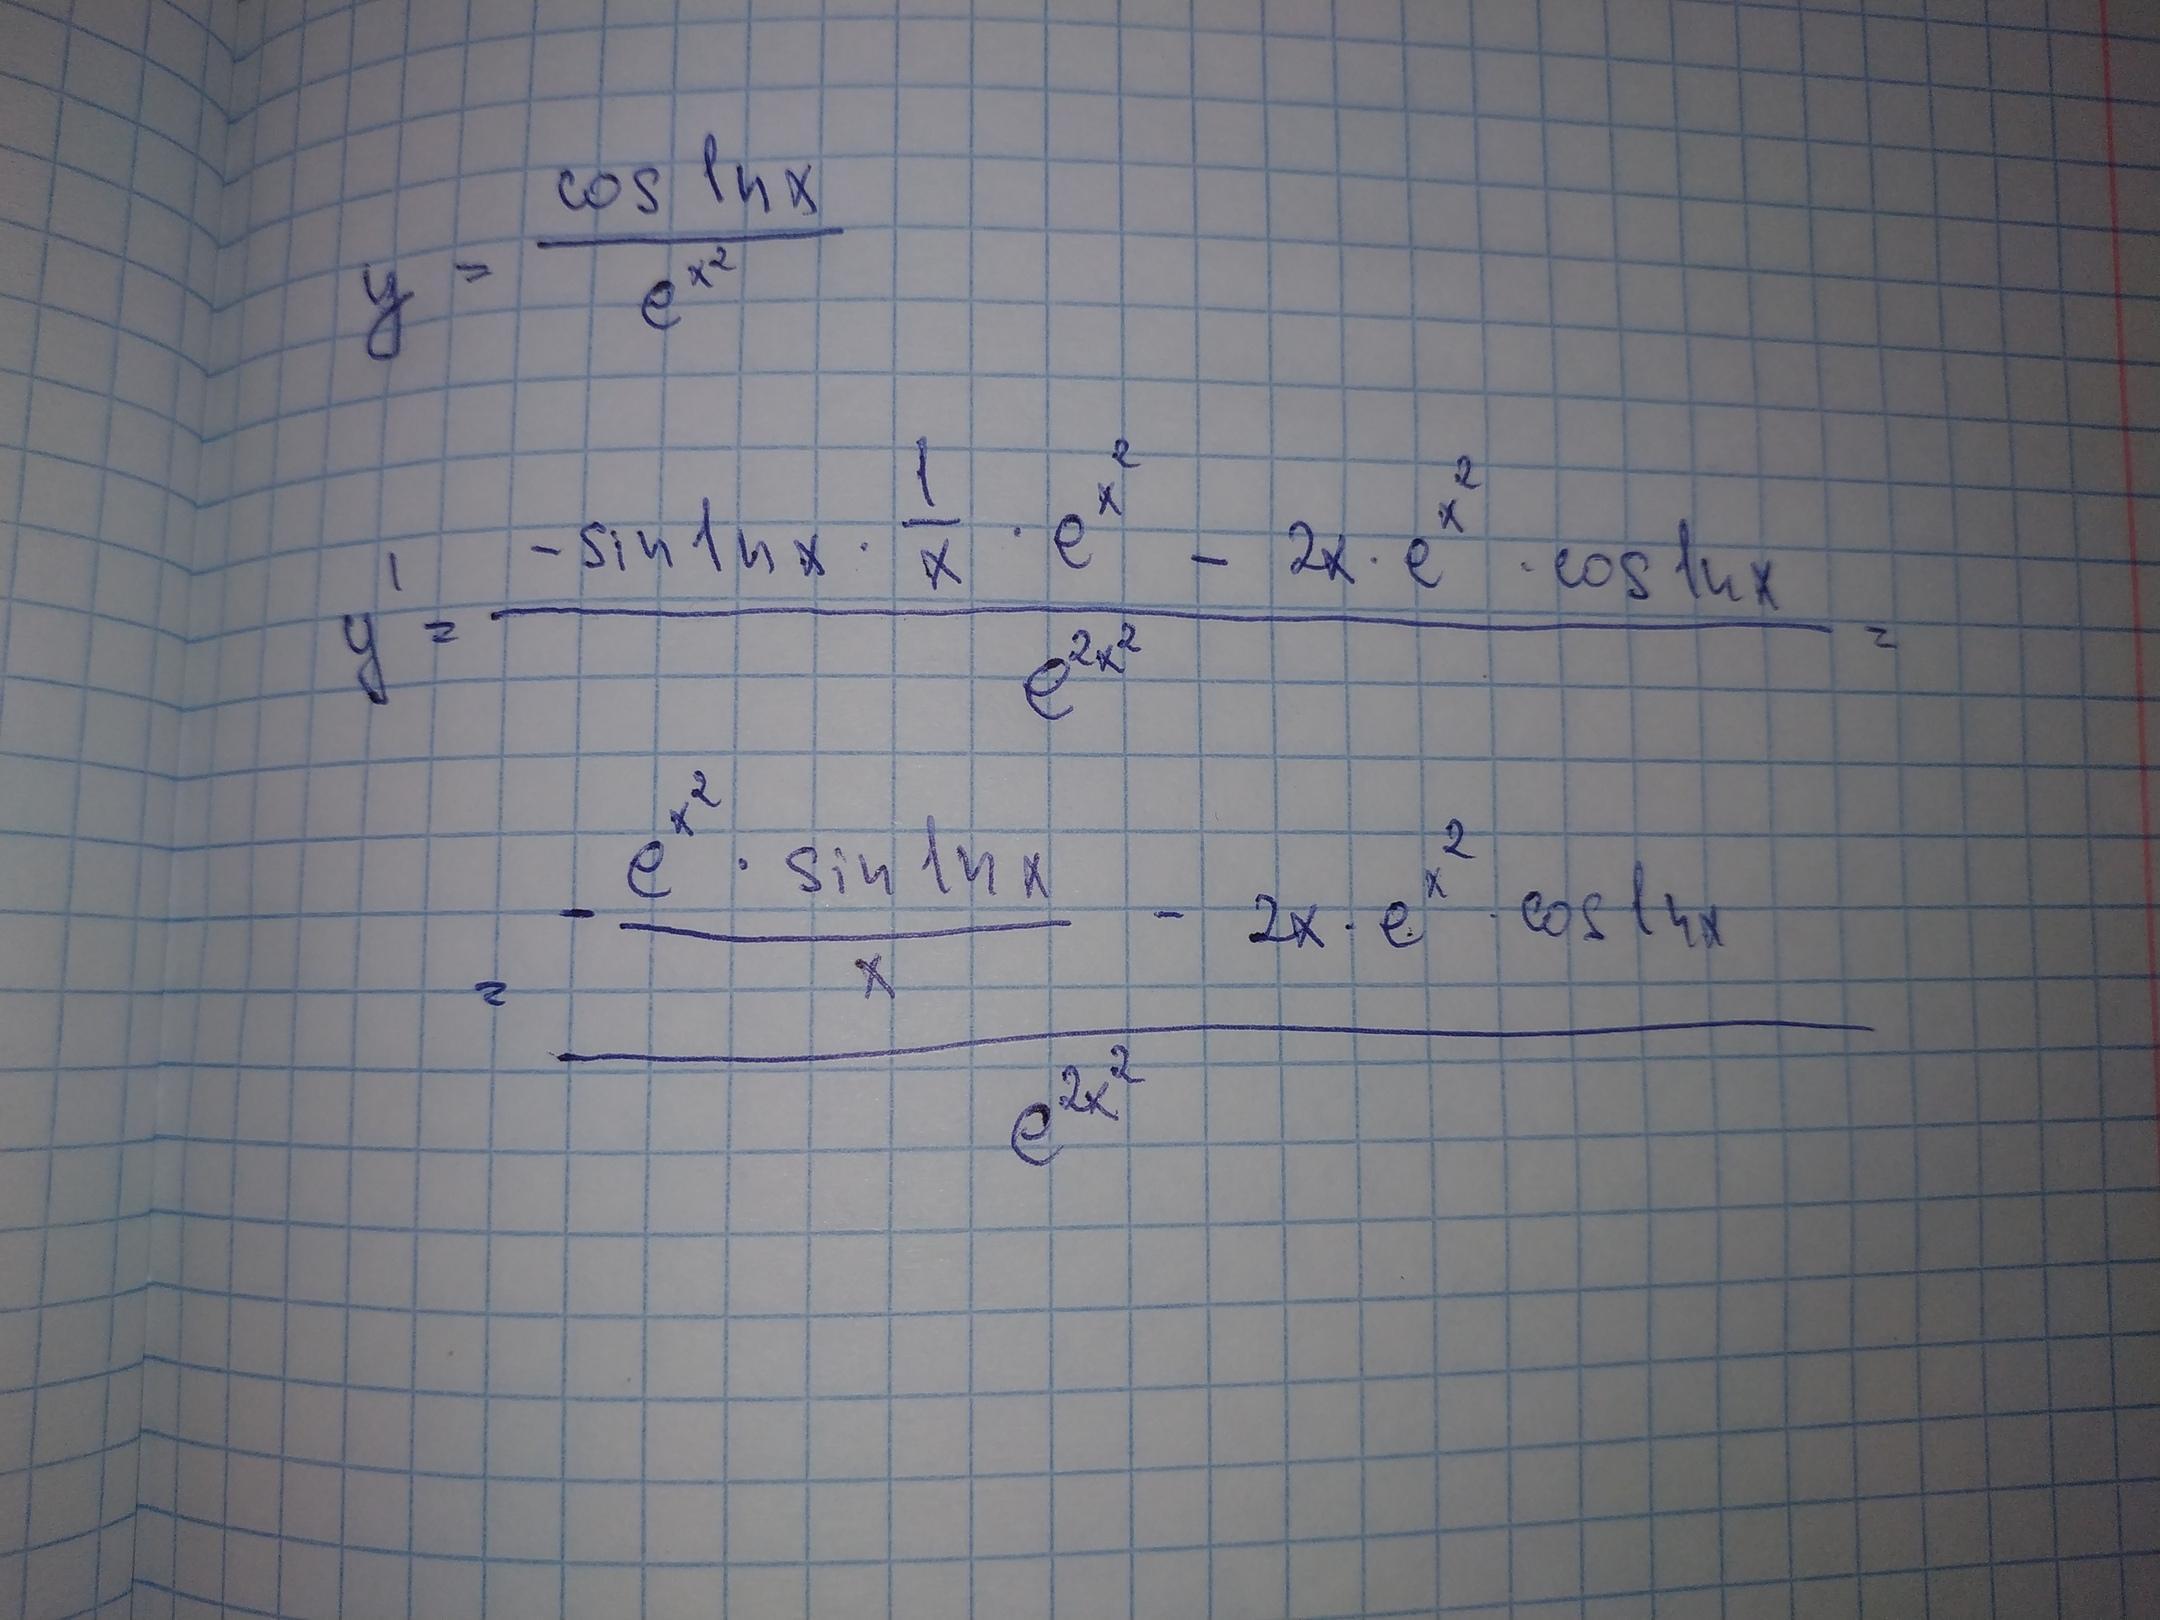 y = cos ln x / e^{x^2}
y' = (-sin ln x · 1/x · e^{x^2} - 2x · e^{x^2} · cos ln x) / e^{2x^2} =
= (- (e^{x^2} · sin ln x) / x - 2x · e^{x^2} · cos ln x) / e^{2x^2}